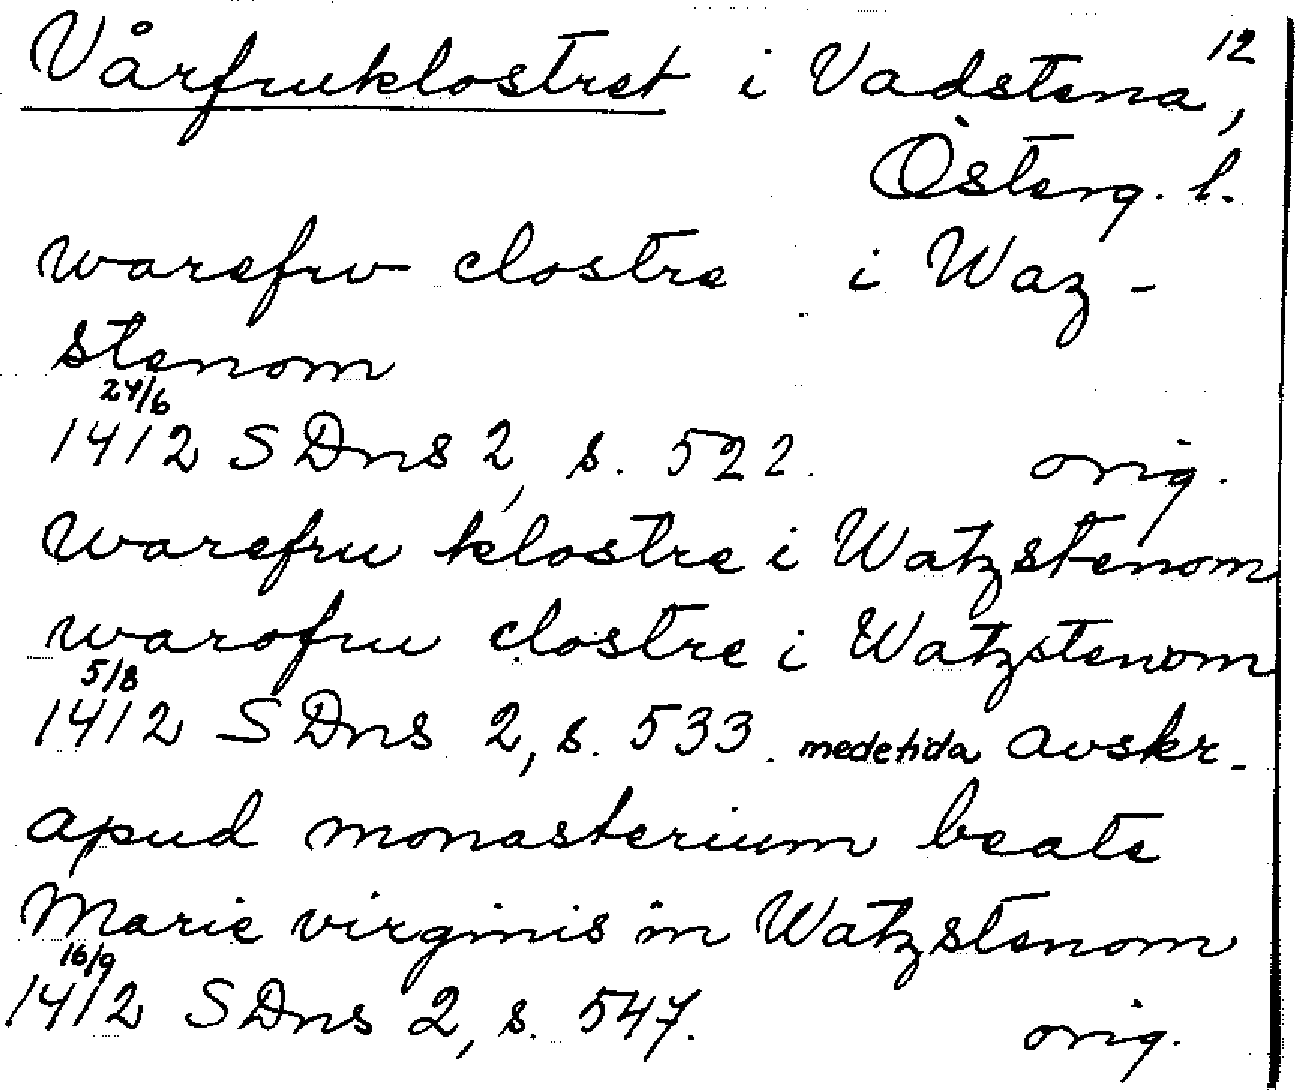 12
Vårfruklostret i Vadstena,
Österg. l.
warefrv clostre i Waz-
stenom
24/6
1412 SDns 2, s. 522. orig.
warefru klostre i Watzstenom
warofru clostre i Watzstenom
5/8
1412 SDns 2, s. 533. medetida avskr.
apud monasterium beate
Marie virginis in Watzstenom
16/9
1412 SDns 2, s. 547. orig.